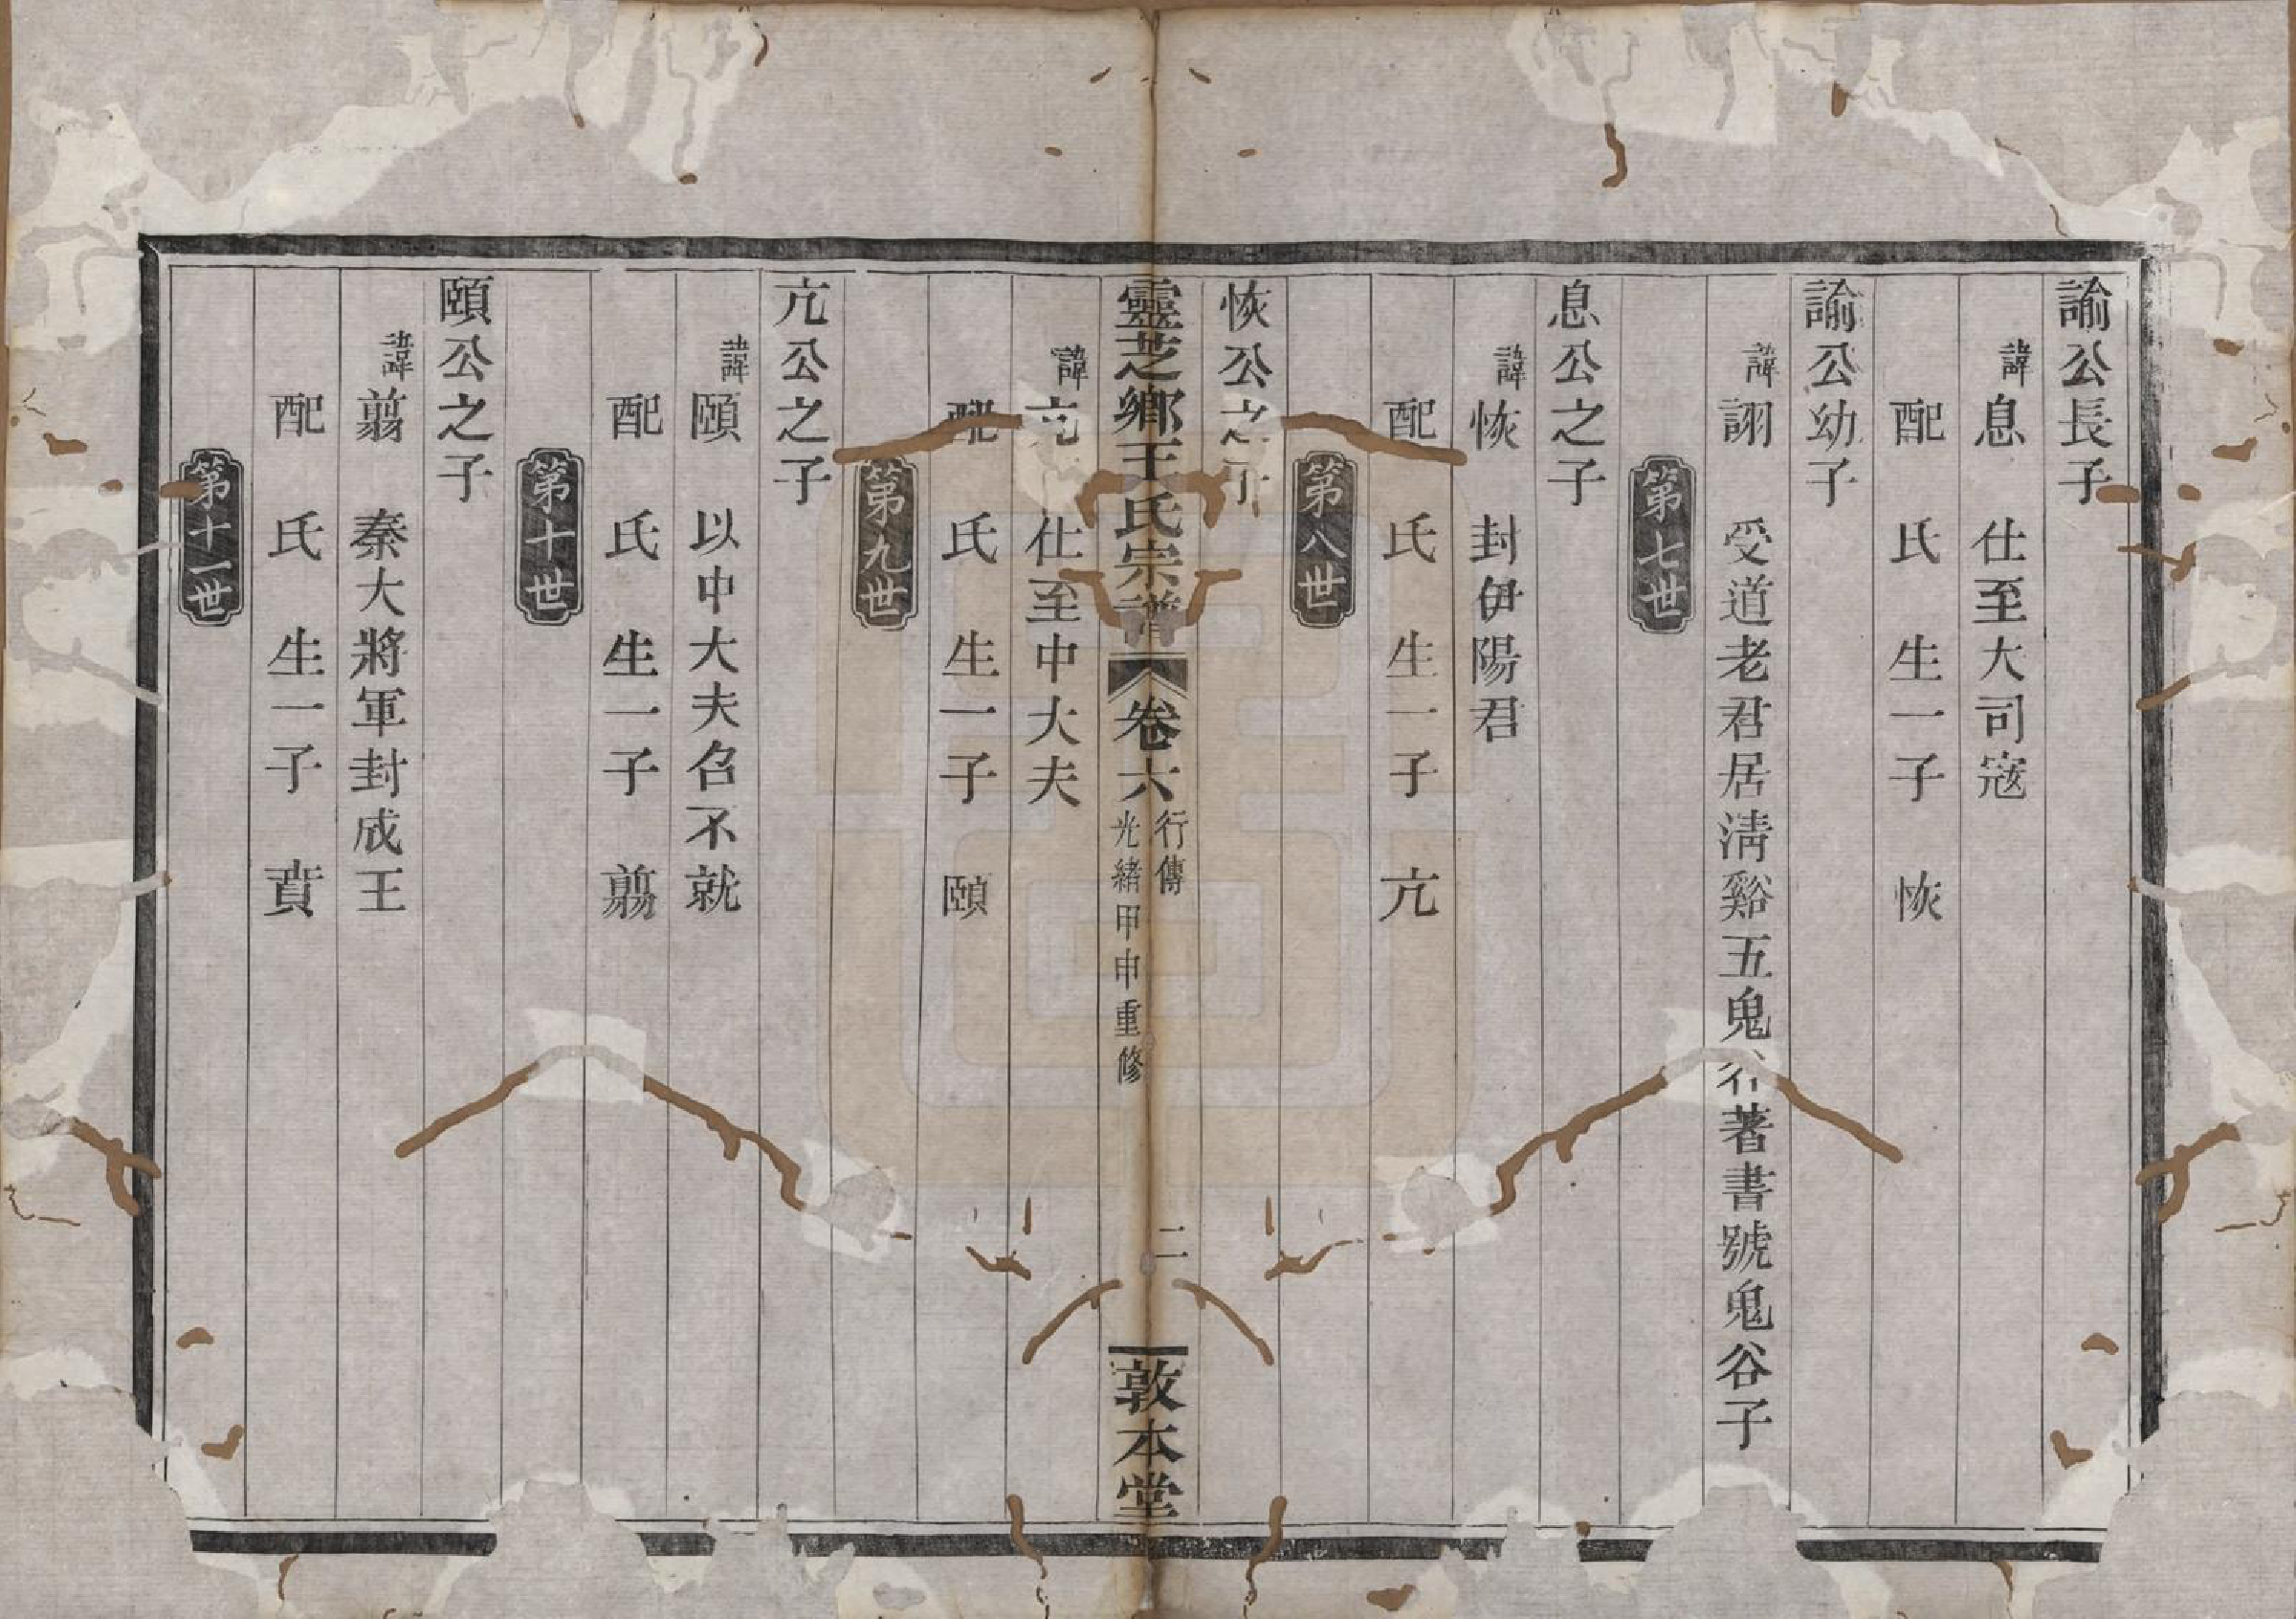 諭公長子
諱息　仕至大司寇
配　氏　生一子　恢
諭公幼子
諱詡　受道老君居淸谿五鬼谷著書號鬼谷子
第七世
息公之子
諱恢　封伊陽君
配　氏　生一子　亢
第八世
恢公之子
靈芝鄉王氏宗譜　卷六　行傳　光緒甲申重修　二　敦本堂
諱亢　仕至中大夫
配　氏　生一子　頤
第九世
亢公之子
諱頤　以中大夫召不就
配　氏　生一子　翦
第十世
頤公之子
諱翦　秦大將軍封成王
配　氏　生一子　賁
第十一世